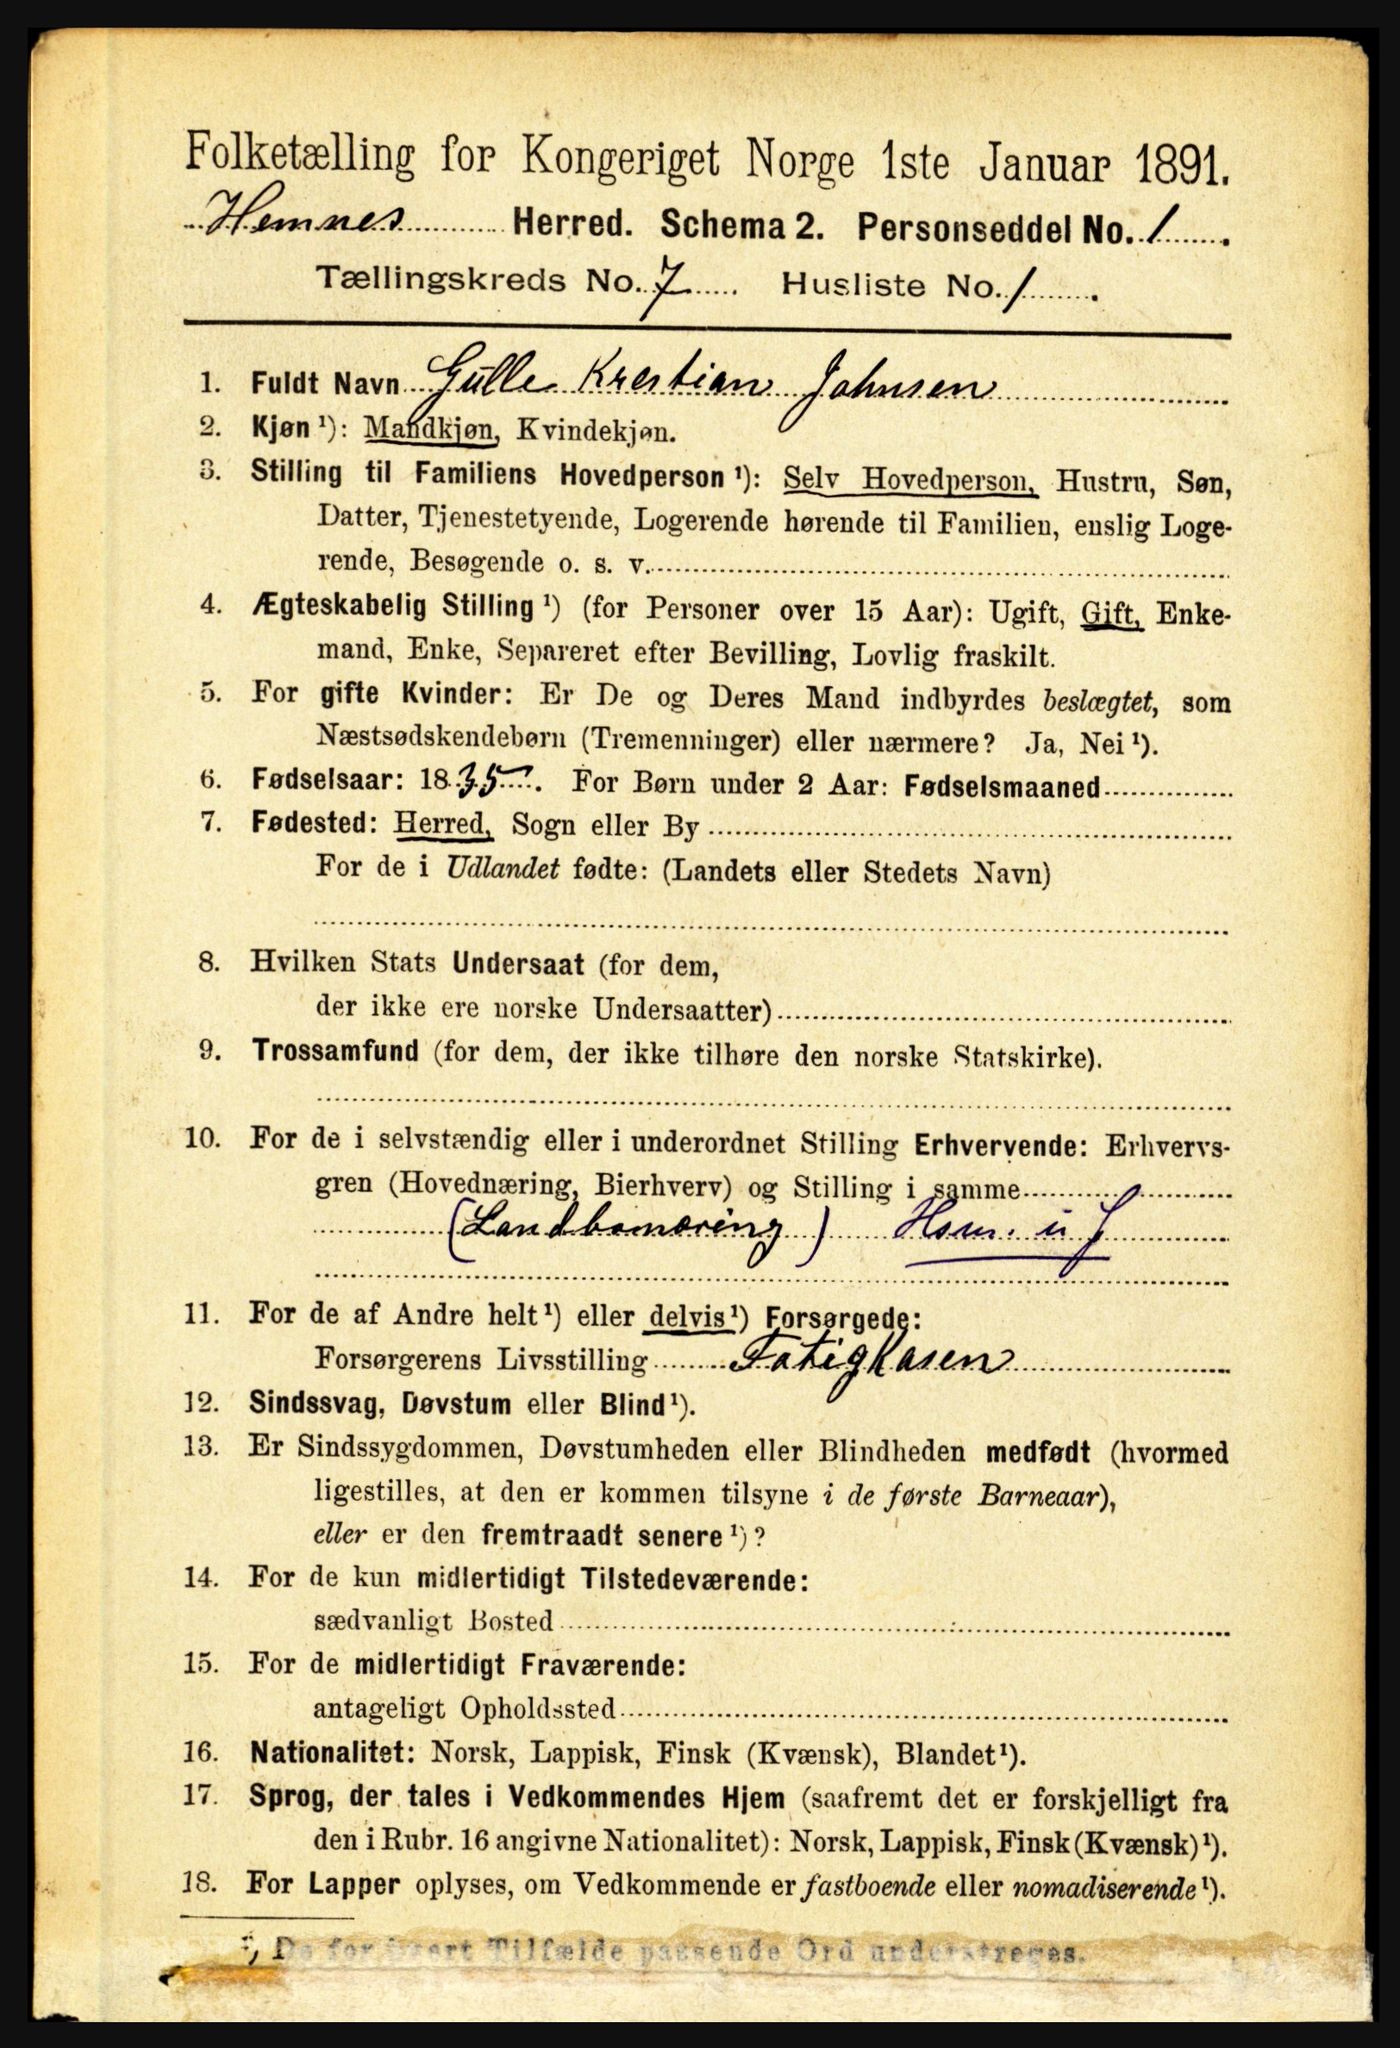 Folketælling for Kongeriget Norge 1ste Januar 1891.
Hemnes Herred. Schema 2. Personseddel No. 1.
Tællingskreds No. 7. Husliste No. 1.
1. Fuldt Navn Gulle Krestian Johnsen
2. Kjøn¹): Mandkjøn, Kvindekjøn.
3. Stilling til Familiens Hovedperson¹): Selv Hovedperson, Hustru, Søn,
Datter, Tjenestetyende, Logerende hørende til Familien, enslig Loge-
rende, Besøgende o. s. v.
4. Ægteskabelig Stilling¹) (for Personer over 15 Aar): Ugift, Gift, Enke-
mand, Enke, Separeret efter Bevilling, Lovlig fraskilt.
5. For gifte Kvinder: Er De og Deres Mand indbyrdes beslægtet, som
Næstsødskendebørn (Tremenninger) eller nærmere? Ja, Nei¹).
6. Fødselsaar: 1835. For Børn under 2 Aar: Fødselsmaaned
7. Fødested: Herred, Sogn eller By
For de i Udlandet fødte: (Landets eller Stedets Navn)
8. Hvilken Stats Undersaat (for dem,
der ikke ere norske Undersaatter)
9. Trossamfund (for dem, der ikke tilhøre den norske Statskirke).
10. For de i selvstændig eller i underordnet Stilling Erhvervende: Erhvervs-
gren (Hovednæring, Bierhverv) og Stilling i samme
(Landbonæring) Hsm. u J
11. For de af Andre helt¹) eller delvis¹) Forsørgede:
Forsørgerens Livsstilling Fatigkasen
12. Sindssvag, Døvstum eller Blind¹).
13. Er Sindssygdommen, Døvstumheden eller Blindheden medfødt (hvormed
ligestilles, at den er kommen tilsyne i de første Barneaar),
eller er den fremtraadt senere¹)?
14. For de kun midlertidigt Tilstedeværende:
sædvanligt Bosted
15. For de midlertidigt Fraværende:
antageligt Opholdssted
16. Nationalitet: Norsk, Lappisk, Finsk (Kvænsk), Blandet¹).
17. Sprog, der tales i Vedkommendes Hjem (saafremt det er forskjelligt fra
den i Rubr. 16 angivne Nationalitet): Norsk, Lappisk, Finsk (Kvænsk)¹).
18. For Lapper oplyses, om Vedkommende er fastboende eller nomadiserende¹).
¹) De for hvert Tilfælde passende Ord understreges.